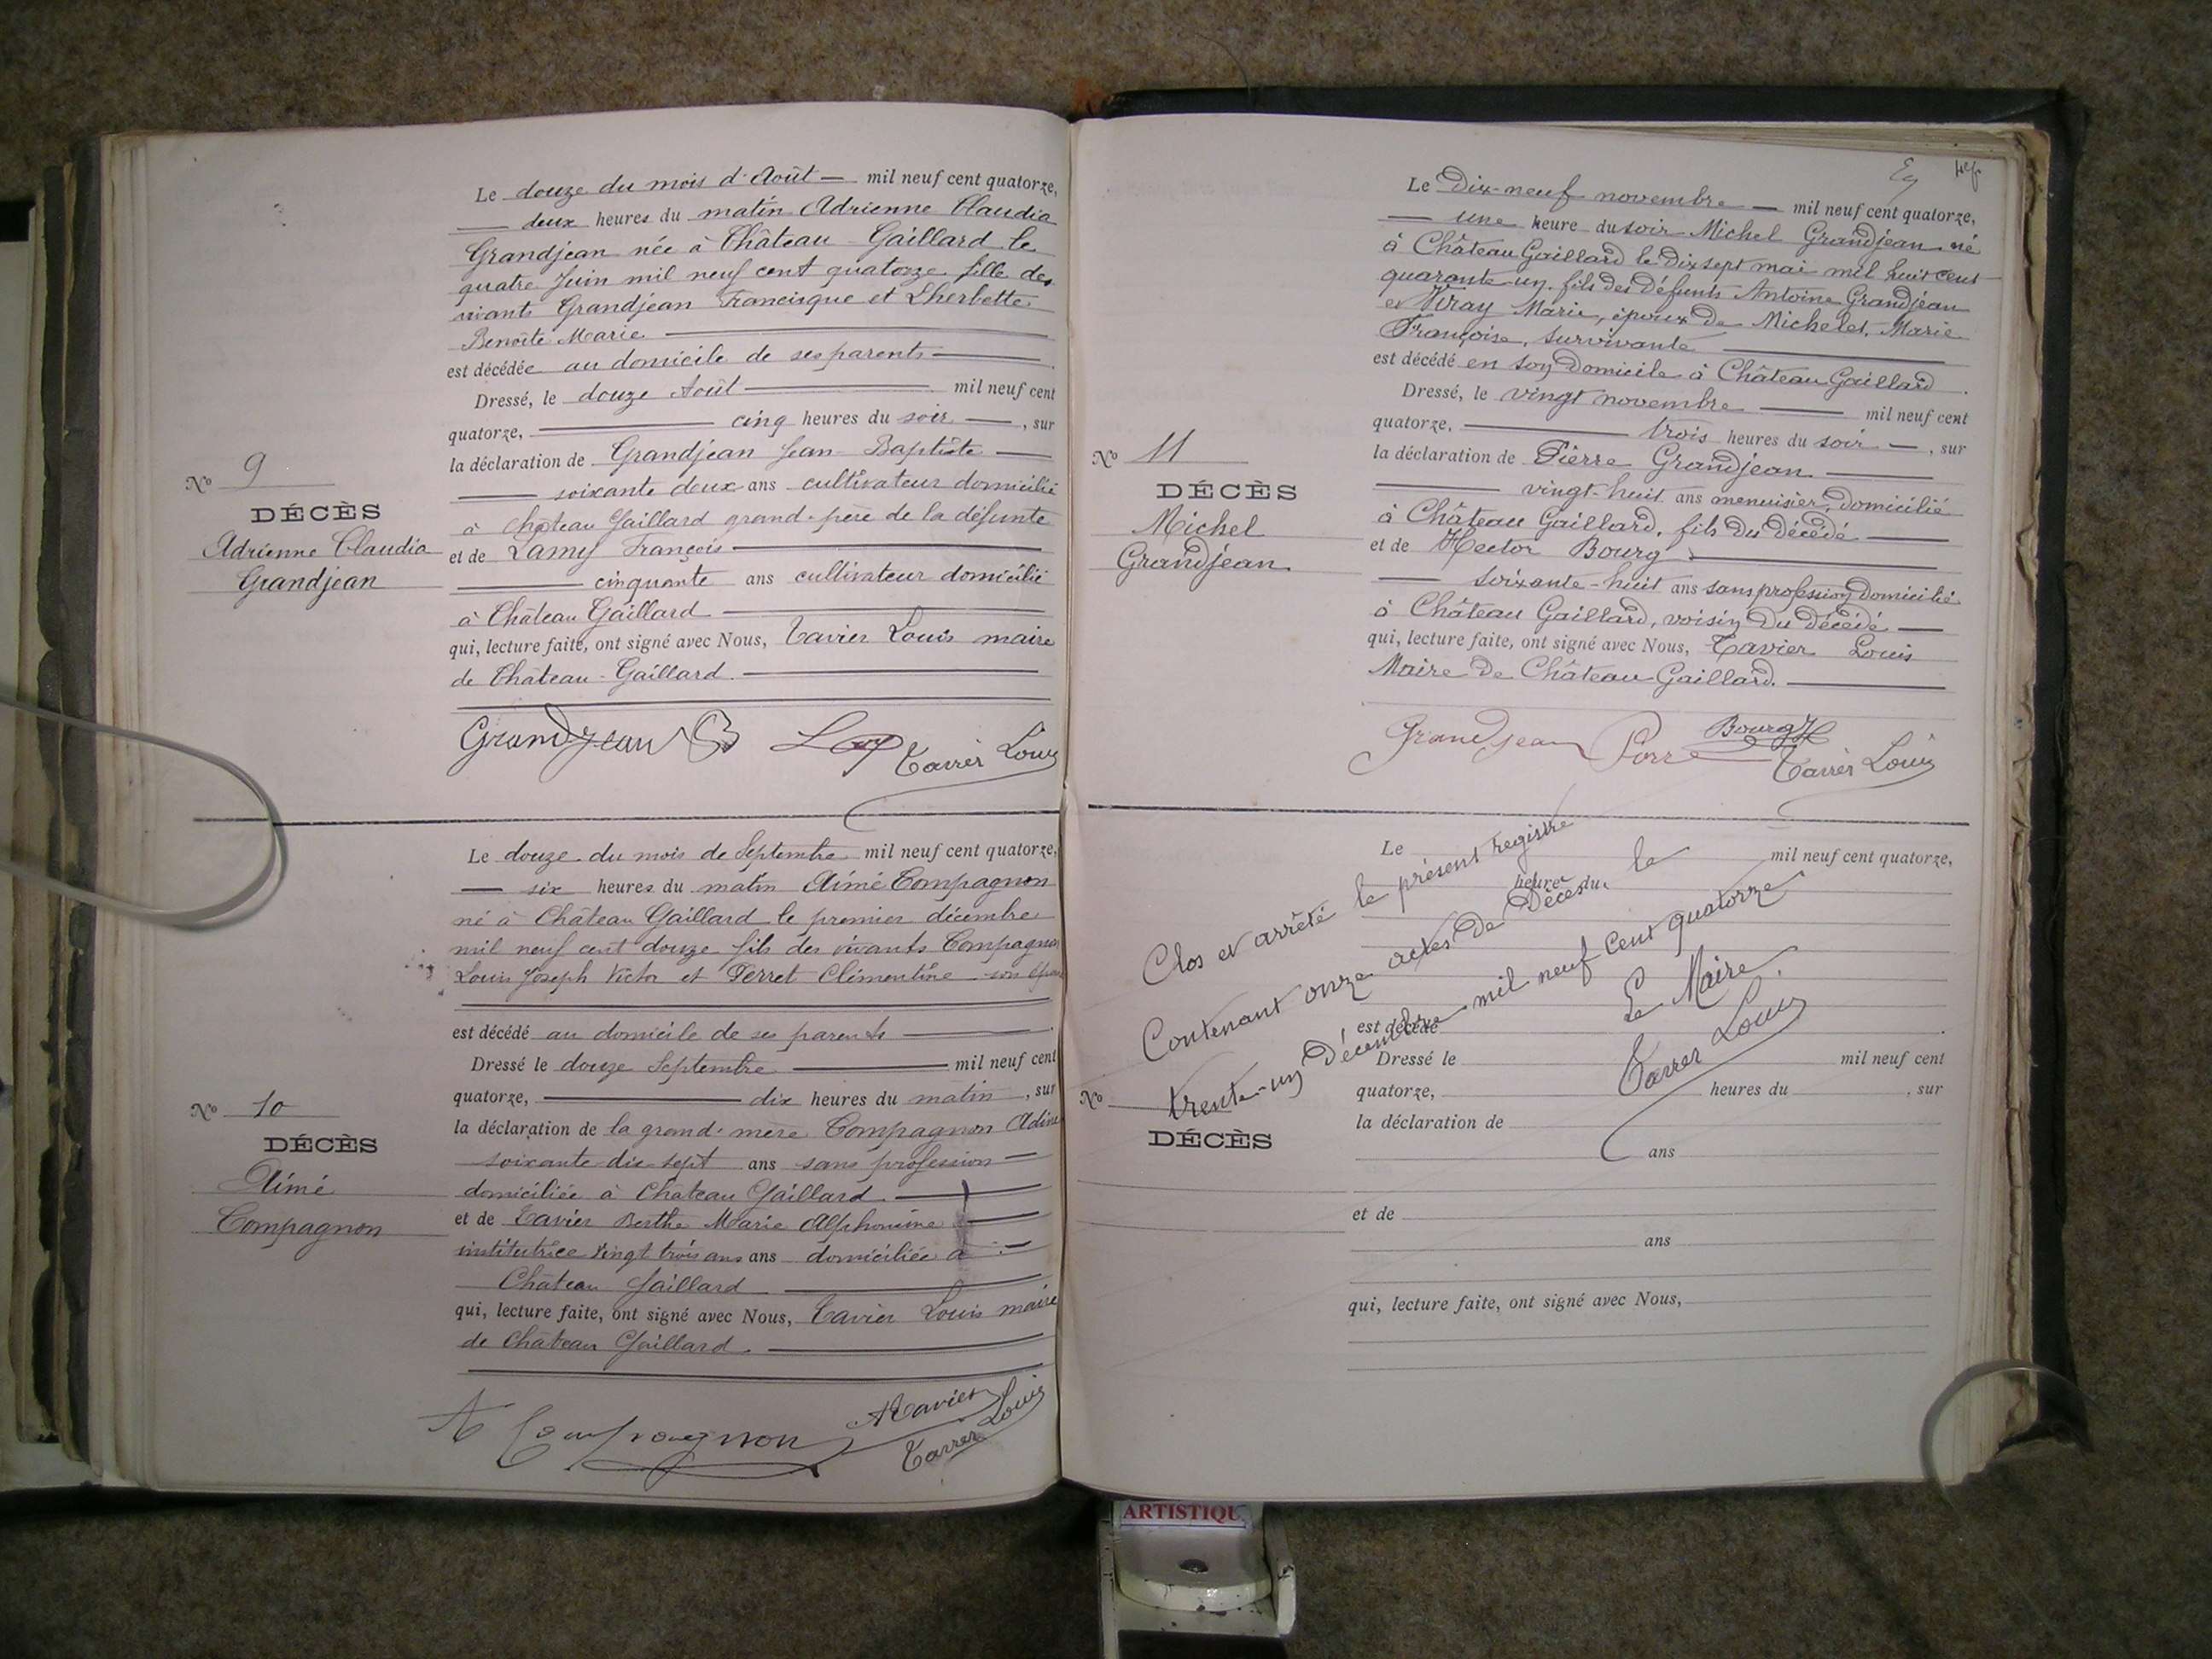 Le douze du mois d'Août — mil neuf cent quatorze,
— deux heures du matin Adrienne Claudia
Grandjean née à Château-Gaillard le
quatre Juin mil neuf cent quatorze fille des
vivants Grandjean Francisque et Lherbette
Benoîte Marie
est décédée au domicile de ses parents
Dressé, le douze Août mil neuf cent
quatorze, cinq heures du soir —, sur
la déclaration de Grandjean Jean-Baptiste —
soixante deux ans cultivateur domicilié
à Château Gaillard grand-père de la défunte
et de Lamy François
cinquante ans cultivateur domicilié
à Château Gaillard
qui, lecture faite, ont signé avec Nous, Tavier Louis maire
de Château-Gaillard.
No 9
DÉCÈS
Adrienne Claudia
Grandjean
Grandjean JB Tavier Louis
Le douze du mois de Septembre mil neuf cent quatorze,
— six heures du matin Aimé Compagnon
né à Château Gaillard le premier décembre
mil neuf cent douze fils des vivants Compagnon
Louis Joseph Victor et Perret Clémentine son
est décédé au domicile de ses parents
Dressé le douze Septembre mil neuf cent
quatorze, dix heures du matin, sur
la déclaration de la grand-mère Compagnon
soixante-dix-sept ans sans profession —
domiciliée à Château Gaillard.
et de Tavier Berthe Marie Alphonsine
institutrice vingt trois ans ans domiciliée à
Château Gaillard
qui, lecture faite, ont signé avec Nous, Tavier Louis maire
de Château Gaillard.
No 10
DÉCÈS
Aimé
Compagnon
A Compagnon A Tavier
Tavier Louis
Le Dix-neuf novembre — mil neuf cent quatorze,
— une heure du soir Michel Grandjean né
à Château Gaillard le Dix sept mai mil huit cent
quarante-un, fils des défunts Antoine Grandjean
et Viray Marie, époux de Michelet Marie
Françoise, survivante
est décédé en son Domicile à Château Gaillard.
Dressé, le vingt novembre mil neuf cent
quatorze, trois heures du soir —, sur
la déclaration de Pierre Grandjean
vingt-huit ans menuisier, domicilié
à Château Gaillard, fils du décédé
et de Hector Bourg
soixante-huit ans sans profession domicilié
à Château Gaillard, voisin du décédé —
qui, lecture faite, ont signé avec Nous, Tavier Louis
Maire de Château Gaillard.
No 11
DÉCÈS
Michel
Grandjean.
Grandjean Pierre Bourg H
Tavier Louis
Le mil neuf cent quatorze,
heure du
est décédé
Dressé le mil neuf cent
quatorze, heures du , sur
la déclaration de
ans
et de
ans
qui, lecture faite, ont signé avec Nous,
No
DÉCÈS
Clos et arrêté le présent registre
Contenant onze actes de Décès le
trente-un Décembre mil neuf Cent quatorze
Le Maire.
Tavier Louis
ARTISTIQU